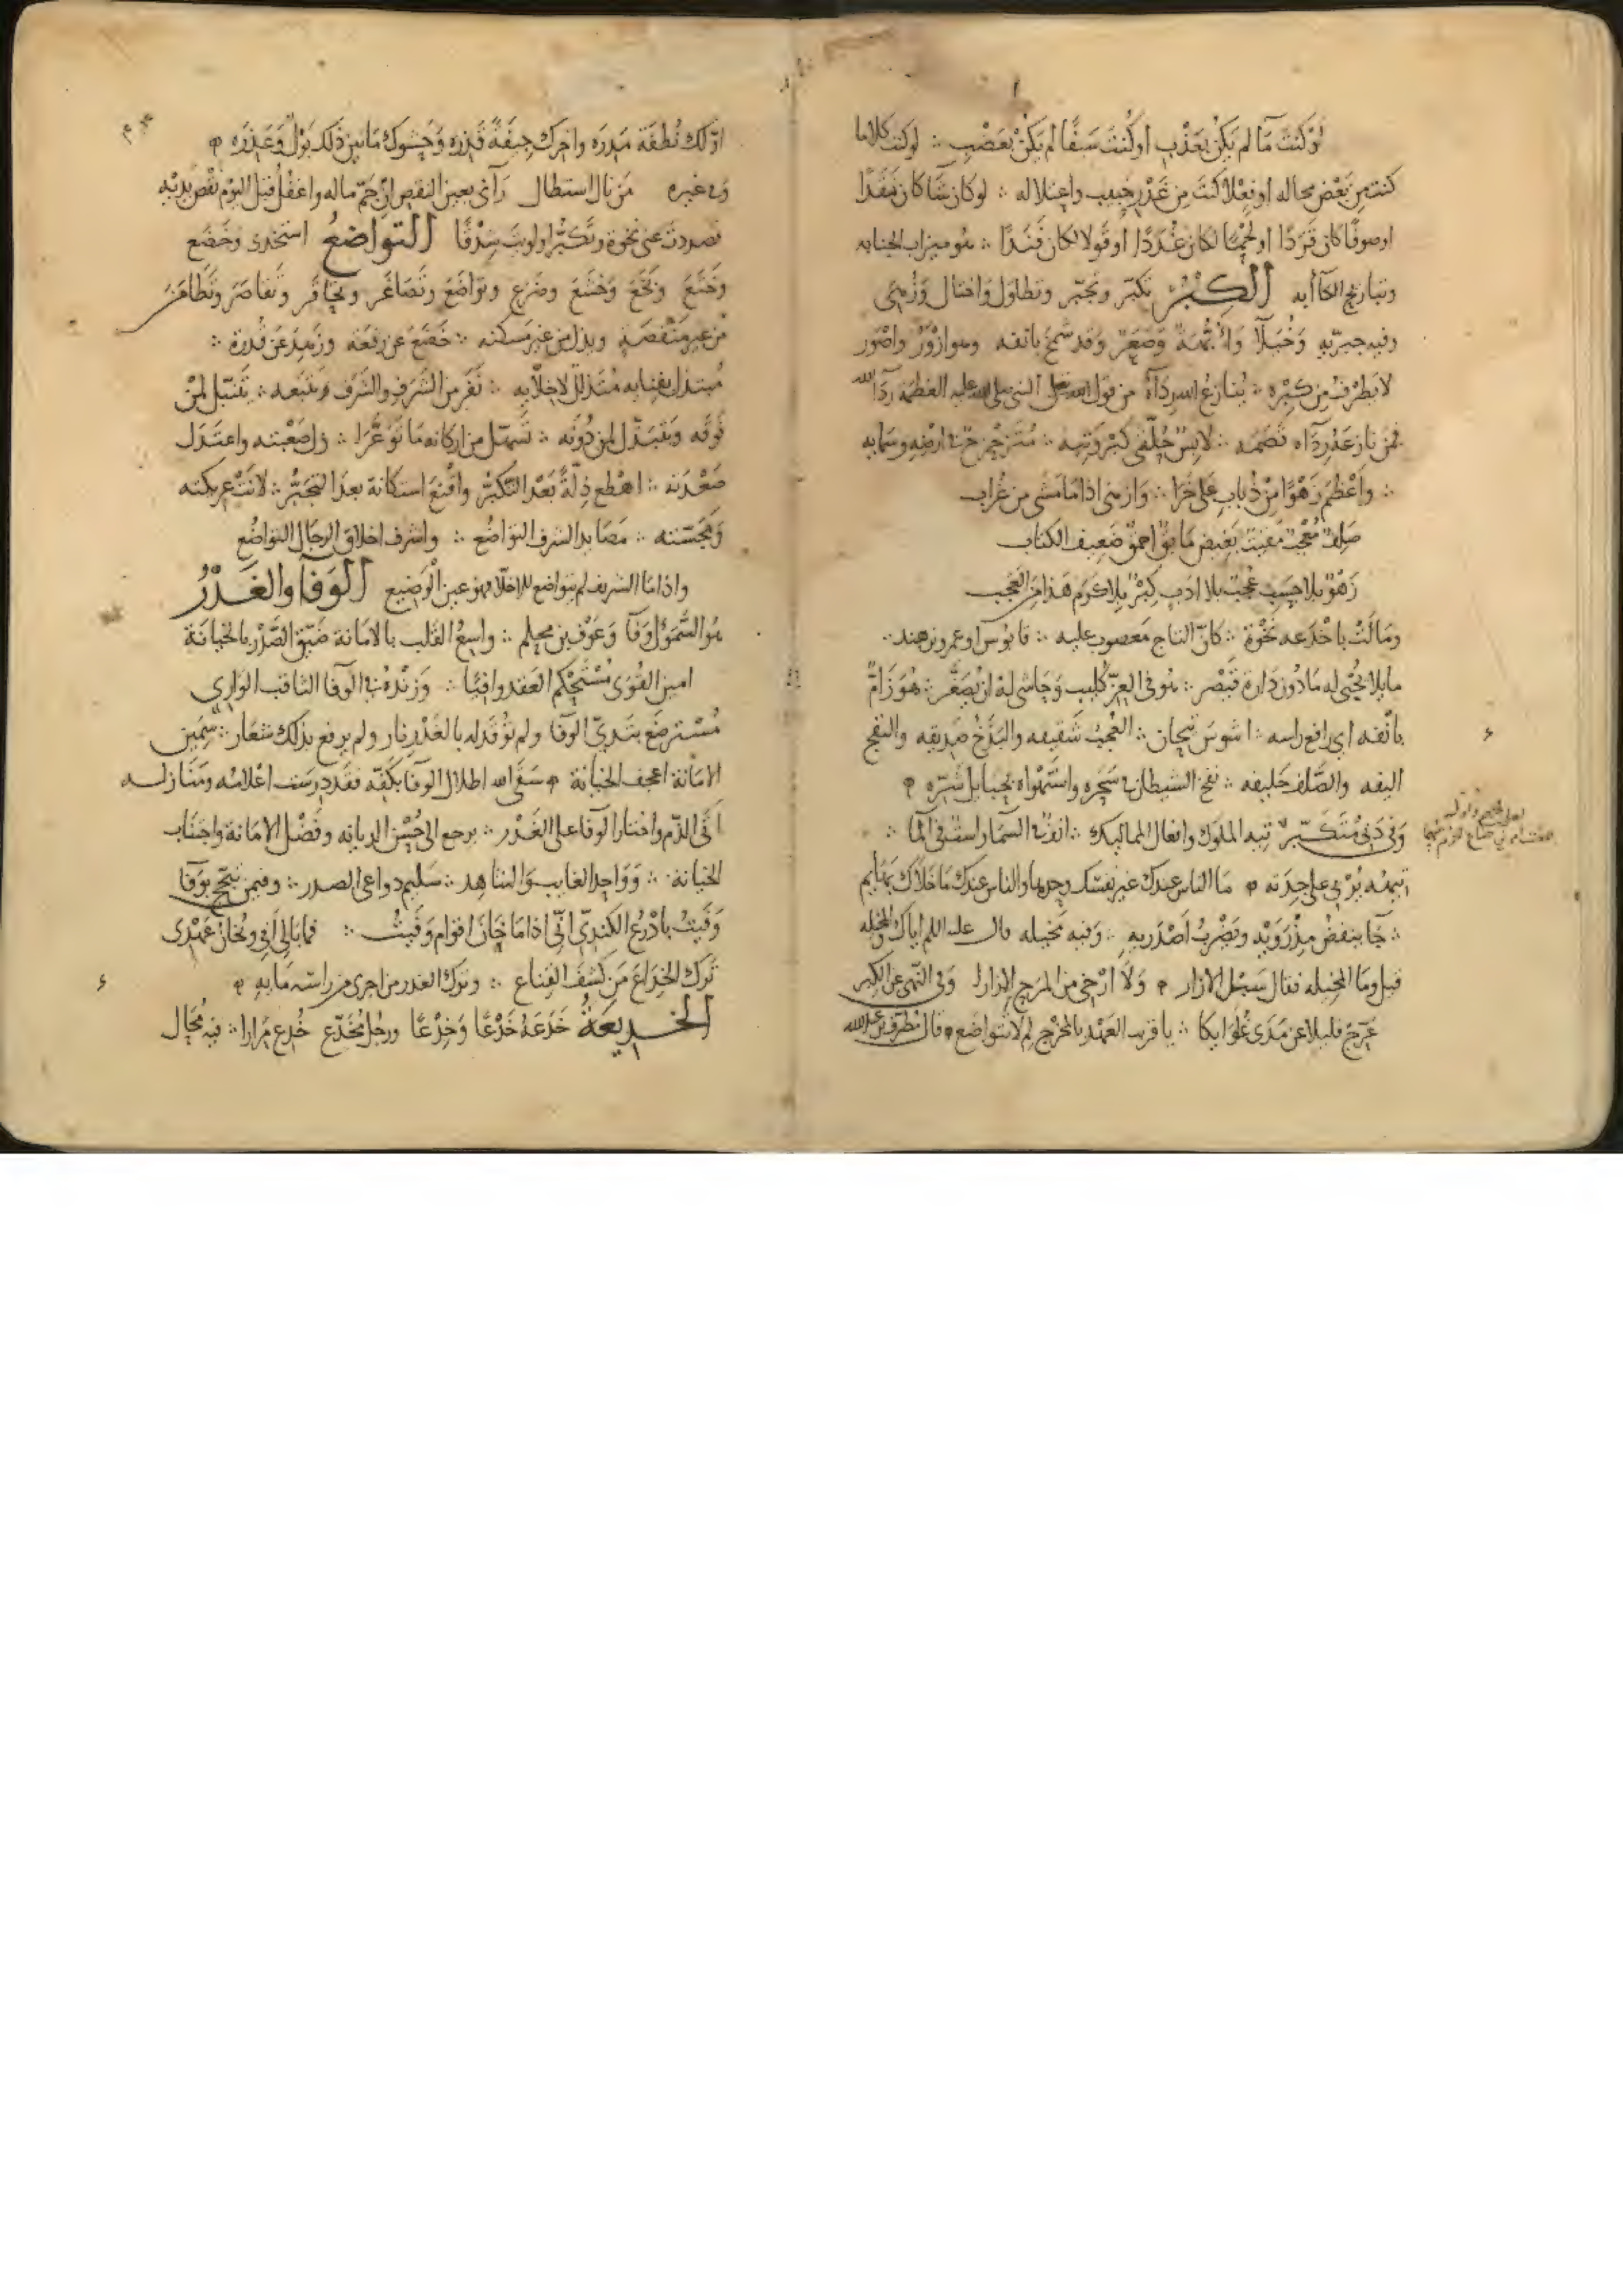 لو كنت مآ لم يكن بعذب او كنت سيفا لم يكن بعضب ∴ لو كنت كلاما
كنت من بعض محاله او فعلا كنت من غدر حبيب واعتلاله ∴ لو كان شا كان نقدا
او صوفا كان قردا او لحما لكان غددا او قولا لكان فندا ∴ هو ميزاب الجنابه
الكبر تكبر وتجبر وتطاول واختال وزهى
وفيه جبرية وخيلآ وابهة وصعر وقد شمخ بانفه وهو ازور واصور
لا يطرف من كبره ∴ ينازع الله ردآه من قول النبى صلى الله عليه العظمة ردآ الله
فمن نازعه ردآه قصمه ∴ لابس حلتى كبر وتيه ∴
∴ واعظم زهوا من ذباب على خرا ∴ وازهى اذا ما مشى من غراب
صلف معجب مقيت بغيض مايق احمق ضعيف الكتاب
زهو بلا حسب عجب بلا ادب كبر بلا كرم هذا من العجب
وما لت باخدعه نخوة ∴ كان التاج معصوب عليه ∴ قابوس او عمرو بن هند
هو فى العز كليب وحاشى له ان يصغر ∴ هو زام
بانفه اى رافع راسه ∴ اشوس تيجان ∴ العجب شقيقه والبذخ صديقه والنفج
اليفه والصلف حليفه ∴ نفخ الشيطان فى سحره
وفى دنى متكبر تيه الملوك وافعال المماليك ∴ انف فى السمآ واست فى المآ ∴
ما الناس عندك غير نفسك وحدها والناس عندك ما خلاك بهايم
∴ جآ ينفض مذرويه ويضرب اصدريه ∴ وفيه مخيله قال عليه السلم اياك والمخيله
قيل وما المخيله فقال سبل الازار ولا ارخى من المرح الازارا وفى النهى عن الكبر
عرج قليلا عن مدى غلوايكا ∴ يا قريب العهد بالمخرج لم لا تتواضع قال مطرف بن عبد الله
اولك نطفة مذره واخرك جيفة قذره وحشوك ما بين ذلك بول وعذره
وفى غيره من نال استطال رآنى بعين النقص ان جم ماله واغفل قبل اليوم نقص يديه
فصددت عنى نخوة وتكبرا ولويت شدقا التواضع استخذى وخضع
وخنع وبخع وخشع وضرع وتواضع وتصاغر وتحاقر وتقاصر وتطامن
من غير منقصة وبذل من غير مسكنه ∴ خضع عن رفعة وزهد عن قدرة ∴
∴ نفر من الشرف والشرف يتبعه ∴ يتنبل لمن
فوقه ويتبذل لمن دونه ∴ تسهل من اركانه ما توعرا ∴ ذل صعبته واعتدل
صعدته ∴ اهطع ذلة بعد التكبر واقنع استكانة بعد التجبر ∴ لانت عريكته
ومجسته ∴ مصايد الشرف التواضع ∴ واشرف اخلاق الرجال التواضع
واذا ما الشريف لم يتواضع للاخلا فهو عين الوضيع الوفا والغدر
هو السموءل وفآ وعوف بن محلم ∴ واسع القلب بالامانة ضيق الصدر بالخيانة
امين القوى مستحكم العقد وافيا ∴ وزنده فى الوفا الثاقب الوارى
مسترضع بثدى الوفا ولم توقد له بالغدر نار ولم يرفع بذلك شعار ∴ سمين
الامانة اعجف الخيانة سقى الله اطلال الوفا بكفه فقد درست اعلامه ومنازله
اتقى الذم واختار الوفا على الغدر ∴ يرجع الى حسن الديانه وفضل الامانة واجتناب
الخيانة ∴ وواحد الغايب والشاهد ∴ سليم دواعى الصدر ∴ وفيمن تبجح بوفا
وفيت بادرع الكندى انى اذا ما خان اقوام وفيت ∴ فما بالى افى ويخان عهدى
ترك الخداع من كشف القناع ∴ وترك الغدر من اجرى من راسه مايه
الخديعة خدعه خدعا وخدعا ورجل مخدع خدع مرارا ∴ فيه محال